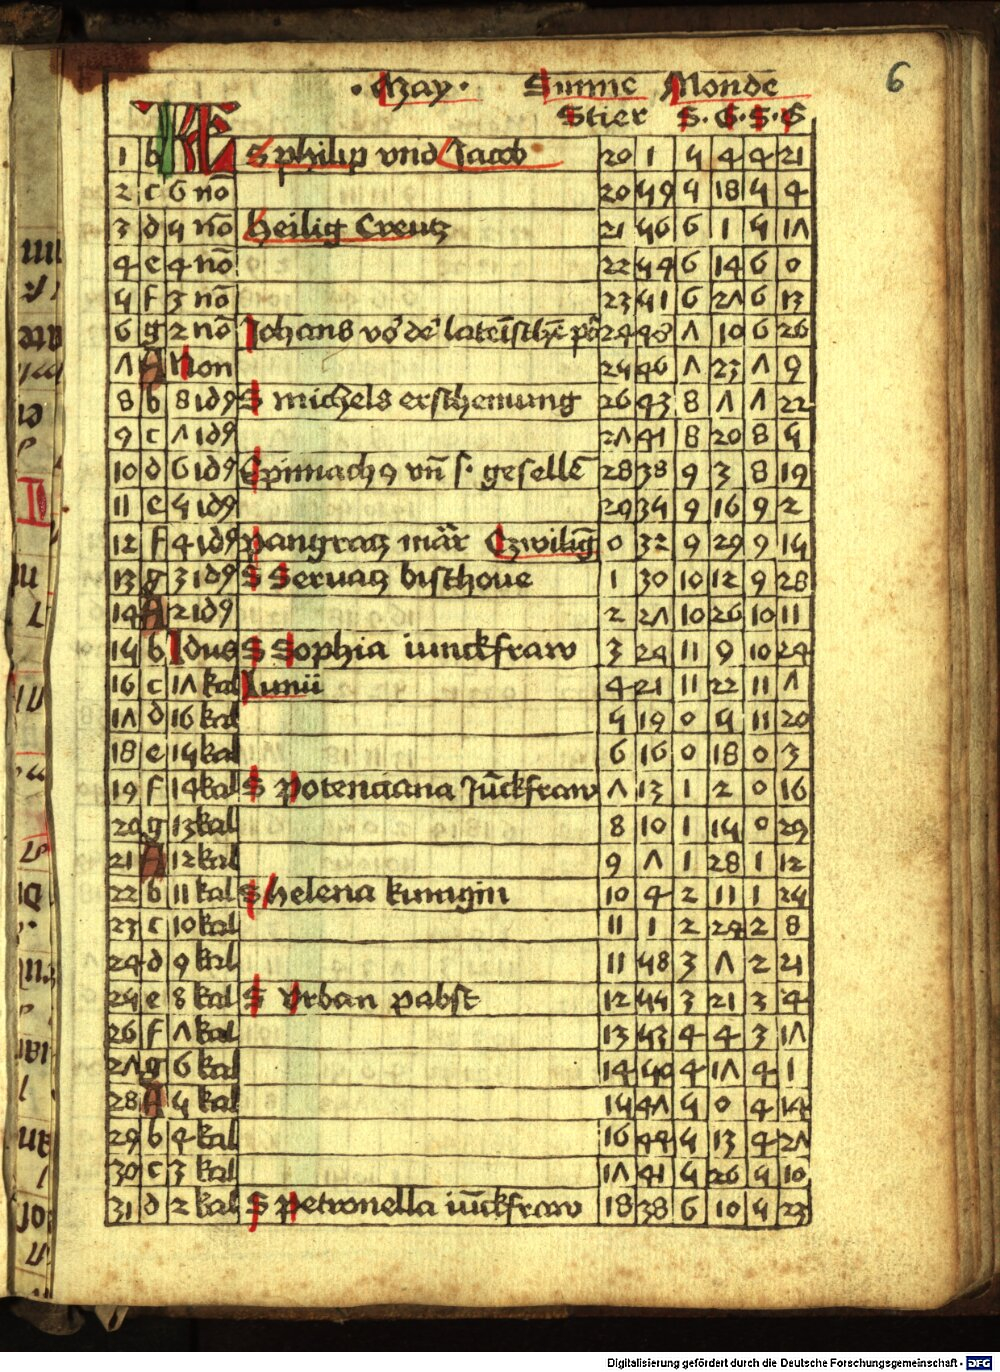 6
· May · Sunne Monde
Stier S · G · S · G
KL
1 b S philip vnd Jacob 20 1 5 4 4 21
2 c 6 nō 20 59 5 18 5 4
3 d 5 nō heilig Creutz 21 56 6 1 5 17
4 e 4 nō 22 54 6 14 6 0
5 f 3 nō 23 51 6 27 6 13
6 g 2 nō Johans vō dē latēischē 24 48 7 10 6 26
7 A Non 25 46 7 23 7 9
8 b 8 idꝰ S michels erscheinung 26 43 8 7 7 22
9 c 7 idꝰ 27 41 8 20 8 5
10 d 6 idꝰ Epimachꝰ vn̄ s. gesellē 28 38 9 3 8 19
11 e 5 idꝰ 29 35 9 16 9 2
12 f 4 idꝰ pangratz mār Czwiling 0 32 9 29 9 15
13 g 3 idꝰ S Seruatz bischoue 1 30 10 12 9 28
14 A 2 idꝰ 2 27 10 26 10 11
15 b Idus S Sophia iunckfraw 3 24 11 9 10 24
16 c 17 kal Iunii 4 21 11 22 11 7
17 d 16 kal 5 19 0 5 11 20
18 e 15 kal 6 16 0 18 0 3
19 f 14 kal S Potenciana Jūckfraw 7 13 1 2 0 16
20 g 13 kal 8 10 1 15 0 29
21 A 12 kal 9 7 1 28 1 12
22 b 11 kal S helena kunigin 10 4 2 11 1 25
23 c 10 kal 11 1 2 24 2 8
24 d 9 kal 11 58 3 7 2 21
25 e 8 kal S Vrban pabst 12 55 3 21 3 4
26 f 7 kal 13 53 4 4 3 17
27 g 6 kal 14 50 4 17 4 1
28 A 5 kal 15 47 5 0 4 14
29 b 4 kal 16 44 5 13 4 27
30 c 3 kal 17 41 5 26 5 10
31 d 2 kal S Petronella iūckfraw 18 38 6 10 5 23
Digitalisierung gefördert durch die Deutsche Forschungsgemeinschaft - DFG